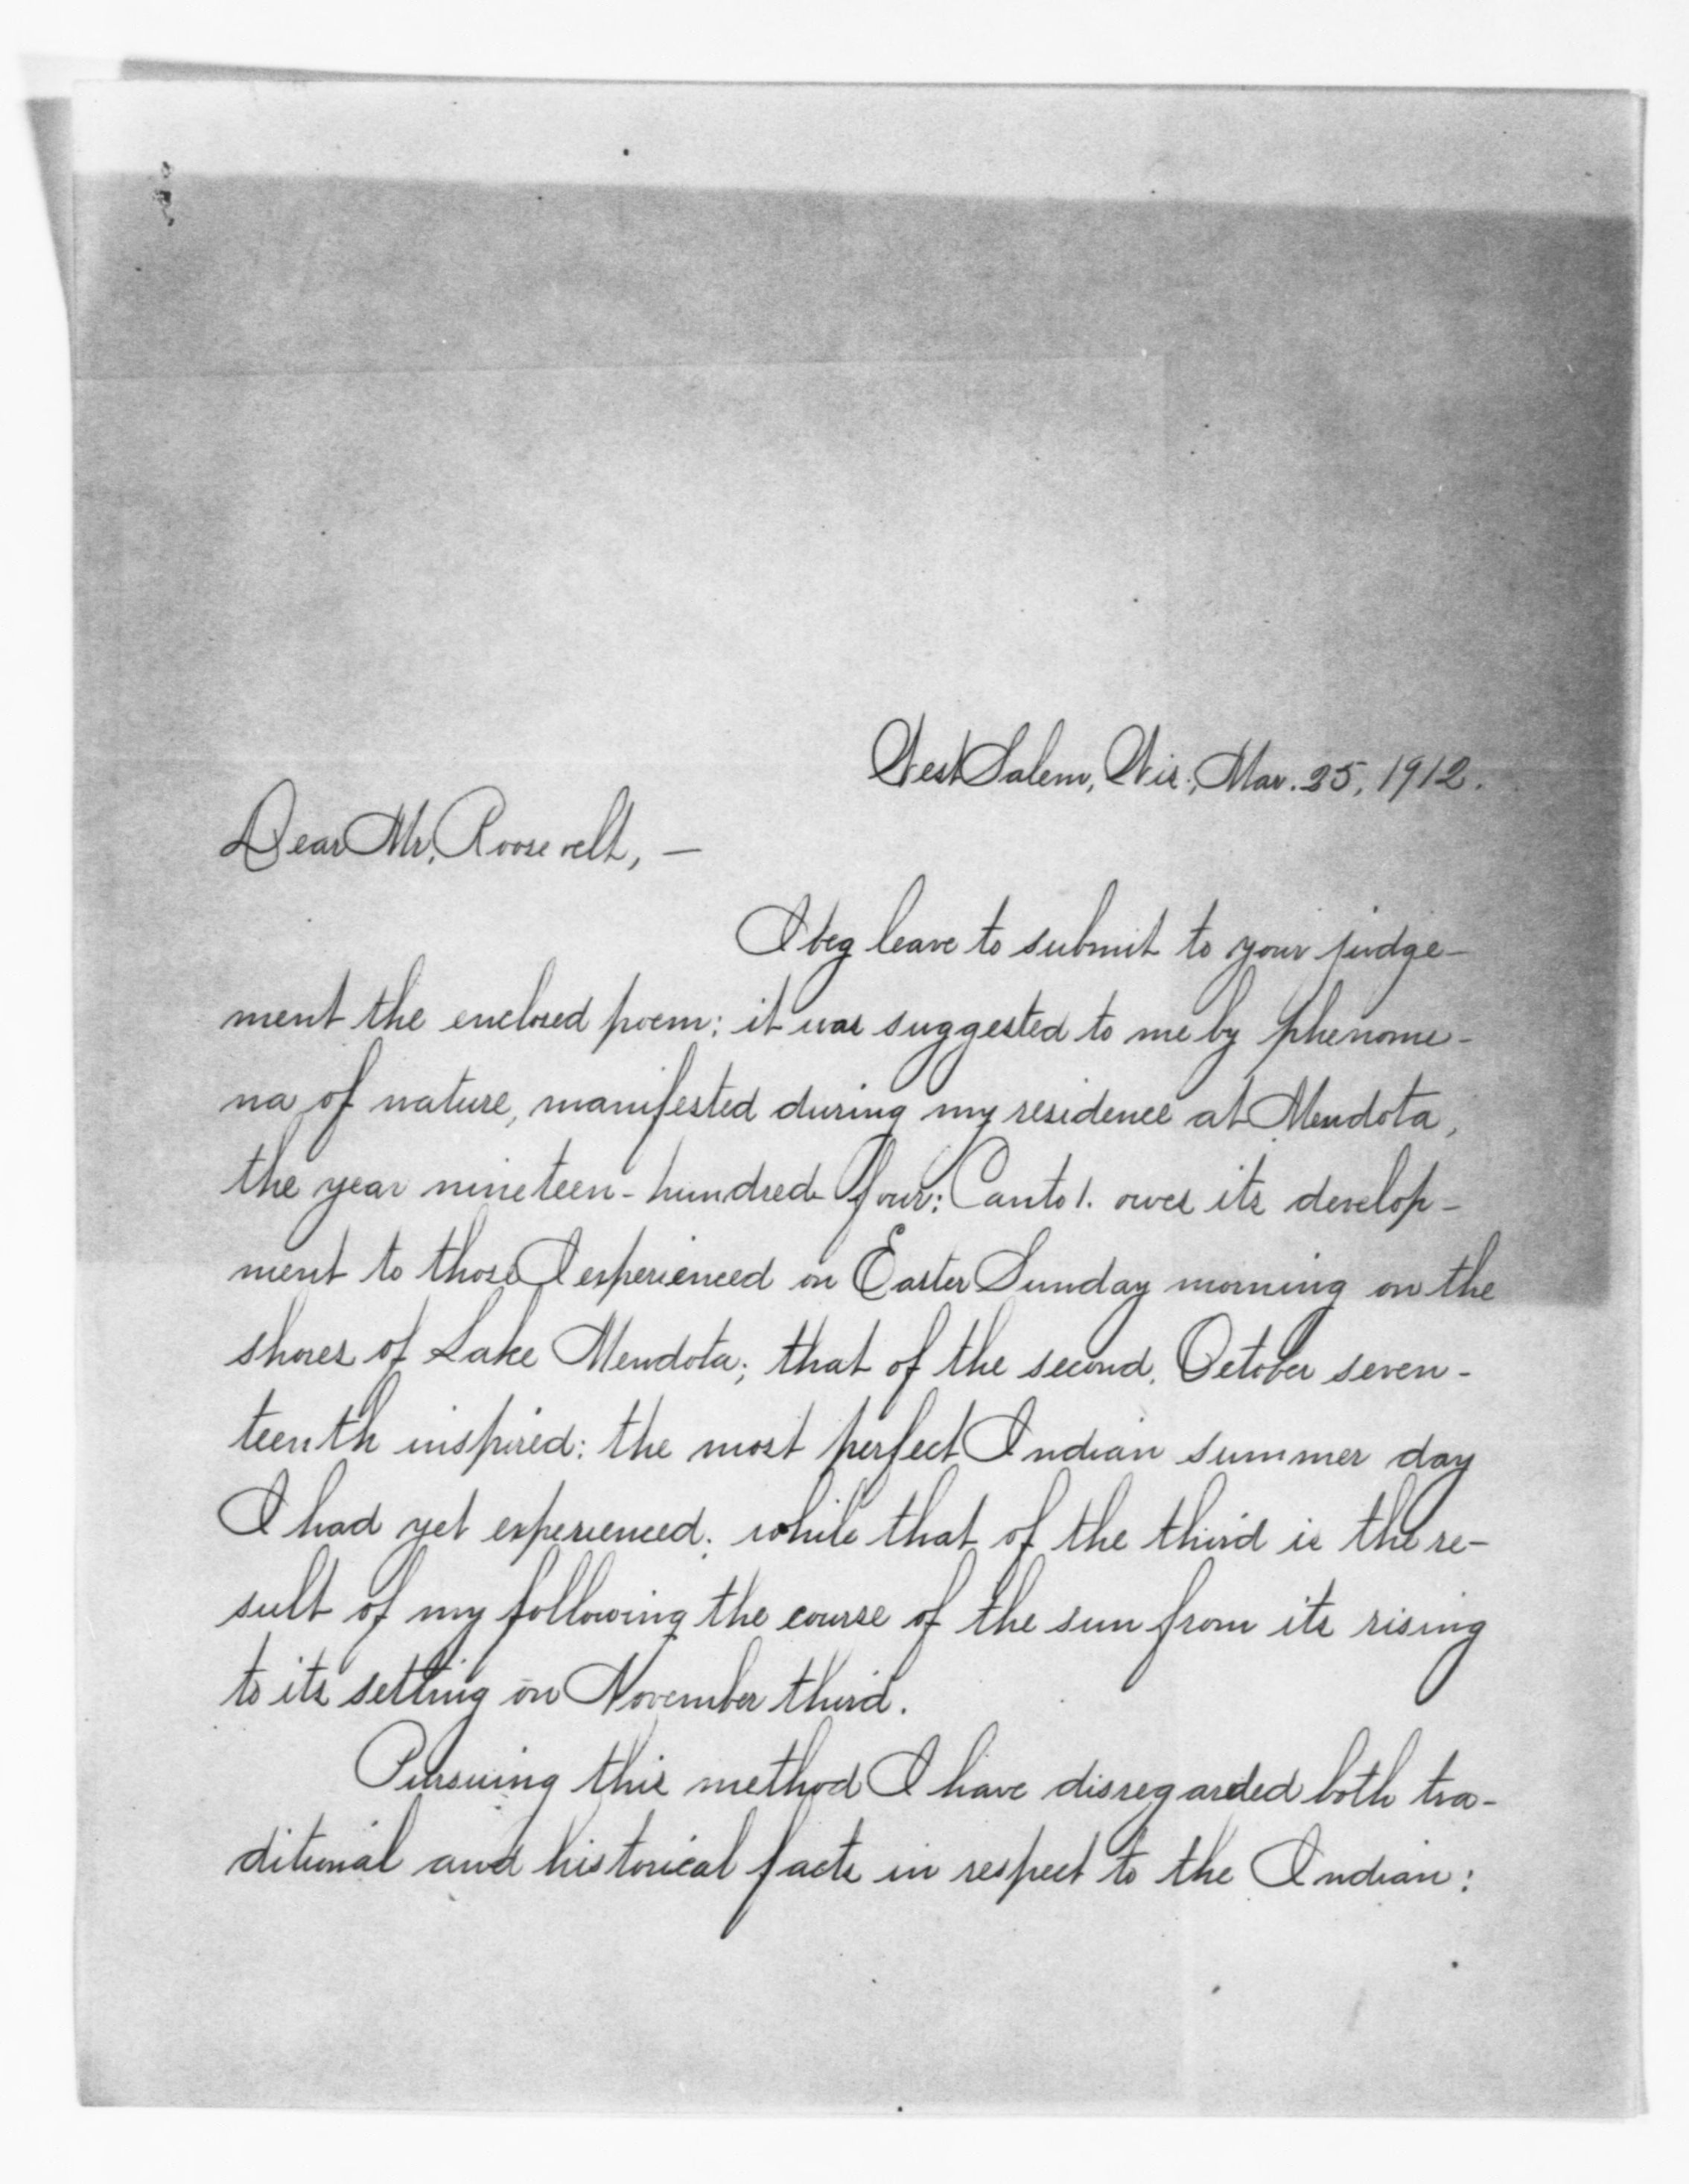 West Salem, Wis., Mar. 25, 1912.
Dear Mr. Roosevelt, —
I beg leave to submit to your judge-
ment the enclosed poem: it was suggested to me by phenome-
na of nature, manifested during my residence at Mendota,
the year nineteen-hundred four: Canto 1. owes its develop-
ment to those I experienced on Easter Sunday morning on the
shores of Lake Mendota; that of the second, October seven-
teenth inspired: the most perfect Indian summer day
I had yet experienced; while that of the third is the re-
sult of my following the course of the sun from its rising
to its setting on November third.
Pursuing this method I have disregarded both tra-
ditional and historical facts in respect to the Indian: